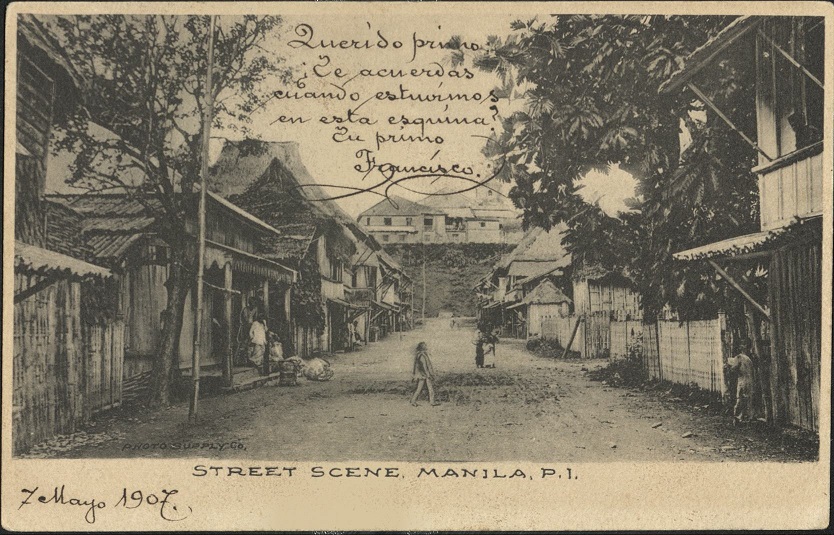 Querido primo
¿Te acuerdas
cuando estuvimos
en esta esquina?
Tu primo
Francisco.
PHOTO SUPPLY CO.
STREET SCENE, MANILA, P.I.
7 Mayo 1907.